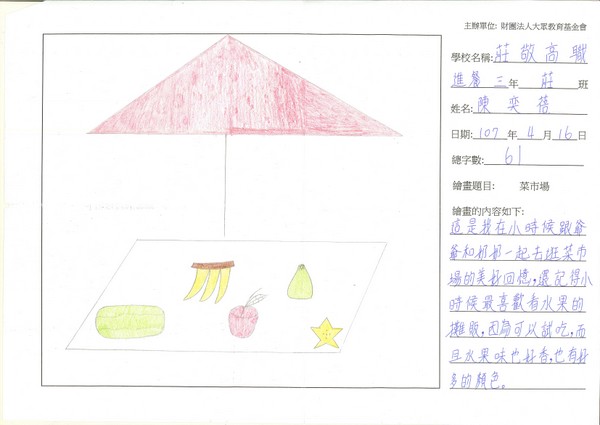 主辦單位: 財團法人大眾教育基金會
學校名稱: 莊敬高職
進餐 三 年 莊 班
姓名: 陳奕蓓
日期: 107 年 4 月 16 日
總字數: 61
繪畫題目: 菜市場
繪畫的內容如下:
這是我在小時候跟爺
爺和奶奶一起去逛菜市
場的美好回憶,還記得小
時候最喜歡看水果的
攤販,因為可以試吃,而
且水果味也好香,也有好
多的顏色。